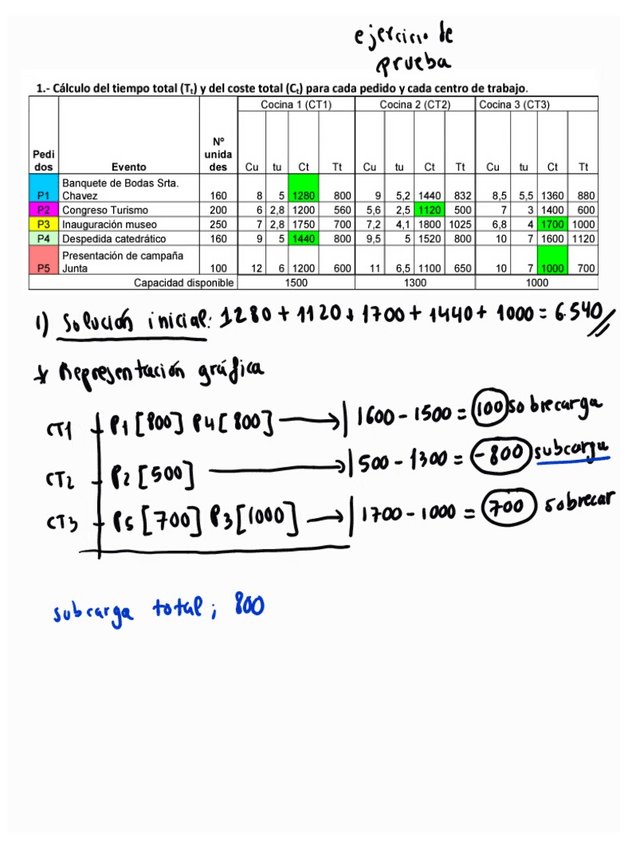 ejercicio de
prueba
1.- Cálculo del tiempo total (Tt) y del coste total (Ct) para cada pedido y cada centro de trabajo.
Cocina 1 (CT1) Cocina 2 (CT2) Cocina 3 (CT3)
Pedidos Evento Nº unidades Cu tu Ct Tt Cu tu Ct Tt Cu tu Ct Tt
P1 Banquete de Bodas Srta. Chavez 160 8 5 1280 800 9 5,2 1440 832 8,5 5,5 1360 880
P2 Congreso Turismo 200 6 2,8 1200 560 5,6 2,5 1120 500 7 3 1400 600
P3 Inauguración museo 250 7 2,8 1750 700 7,2 4,1 1800 1025 6,8 4 1700 1000
P4 Despedida catedrático 160 9 5 1440 800 9,5 5 1520 800 10 7 1600 1120
P5 Presentación de campaña Junta 100 12 6 1200 600 11 6,5 1100 650 10 7 1000 700
Capacidad disponible 1500 1300 1000
1) Solución inicial: 1280 + 1120 + 1700 + 1440 + 1000 = 6.540
* Representación gráfica
CT1 P1 [800] P4 [800] 1600 - 1500 = 100 sobrecarga
CT2 P2 [500] 500 - 1300 = -800 subcarga
CT3 P5 [700] P3 [1000] 1700 - 1000 = 700 sobrecar
subcarga total; 800